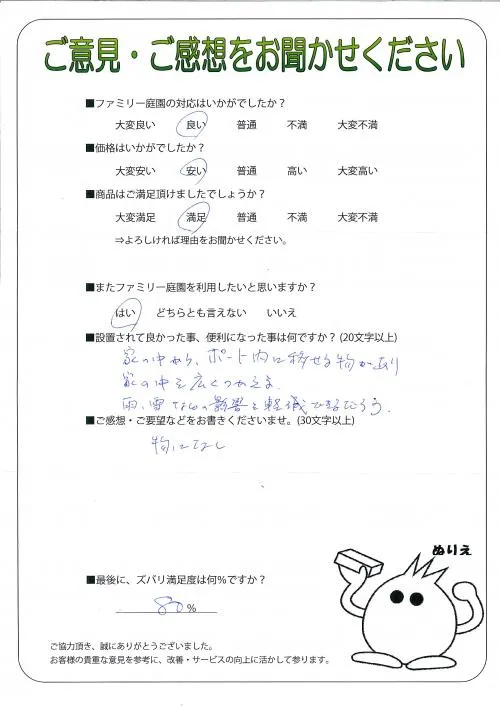 ご意見・ご感想をお聞かせください
■ファミリー庭園の対応はいかがでしたか?
大変良い 良い 普通 不満 大変不満
■価格はいかがでしたか?
大変安い 安い 普通 高い 大変高い
■商品はご満足頂けましたでしょうか?
大変満足 満足 普通 不満 大変不満
⇒よろしければ理由をお聞かせください。
■またファミリー庭園を利用したいと思いますか?
はい どちらとも言えない いいえ
■設置されて良かった事、便利になった事は何ですか? (20文字以上)
家の中から、ポート内に移せる物があり
家の中を広くつかえます.
雨、雪などの影響を軽減できるだろう.
■ご感想・ご要望などをお書きくださいませ。(30文字以上)
物になし
ぬりえ
■最後に、ズバリ満足度は何%ですか?
80 %
ご協力頂き、誠にありがとうございました。
お客様の貴重な意見を参考に、改善・サービスの向上に活かして参ります。